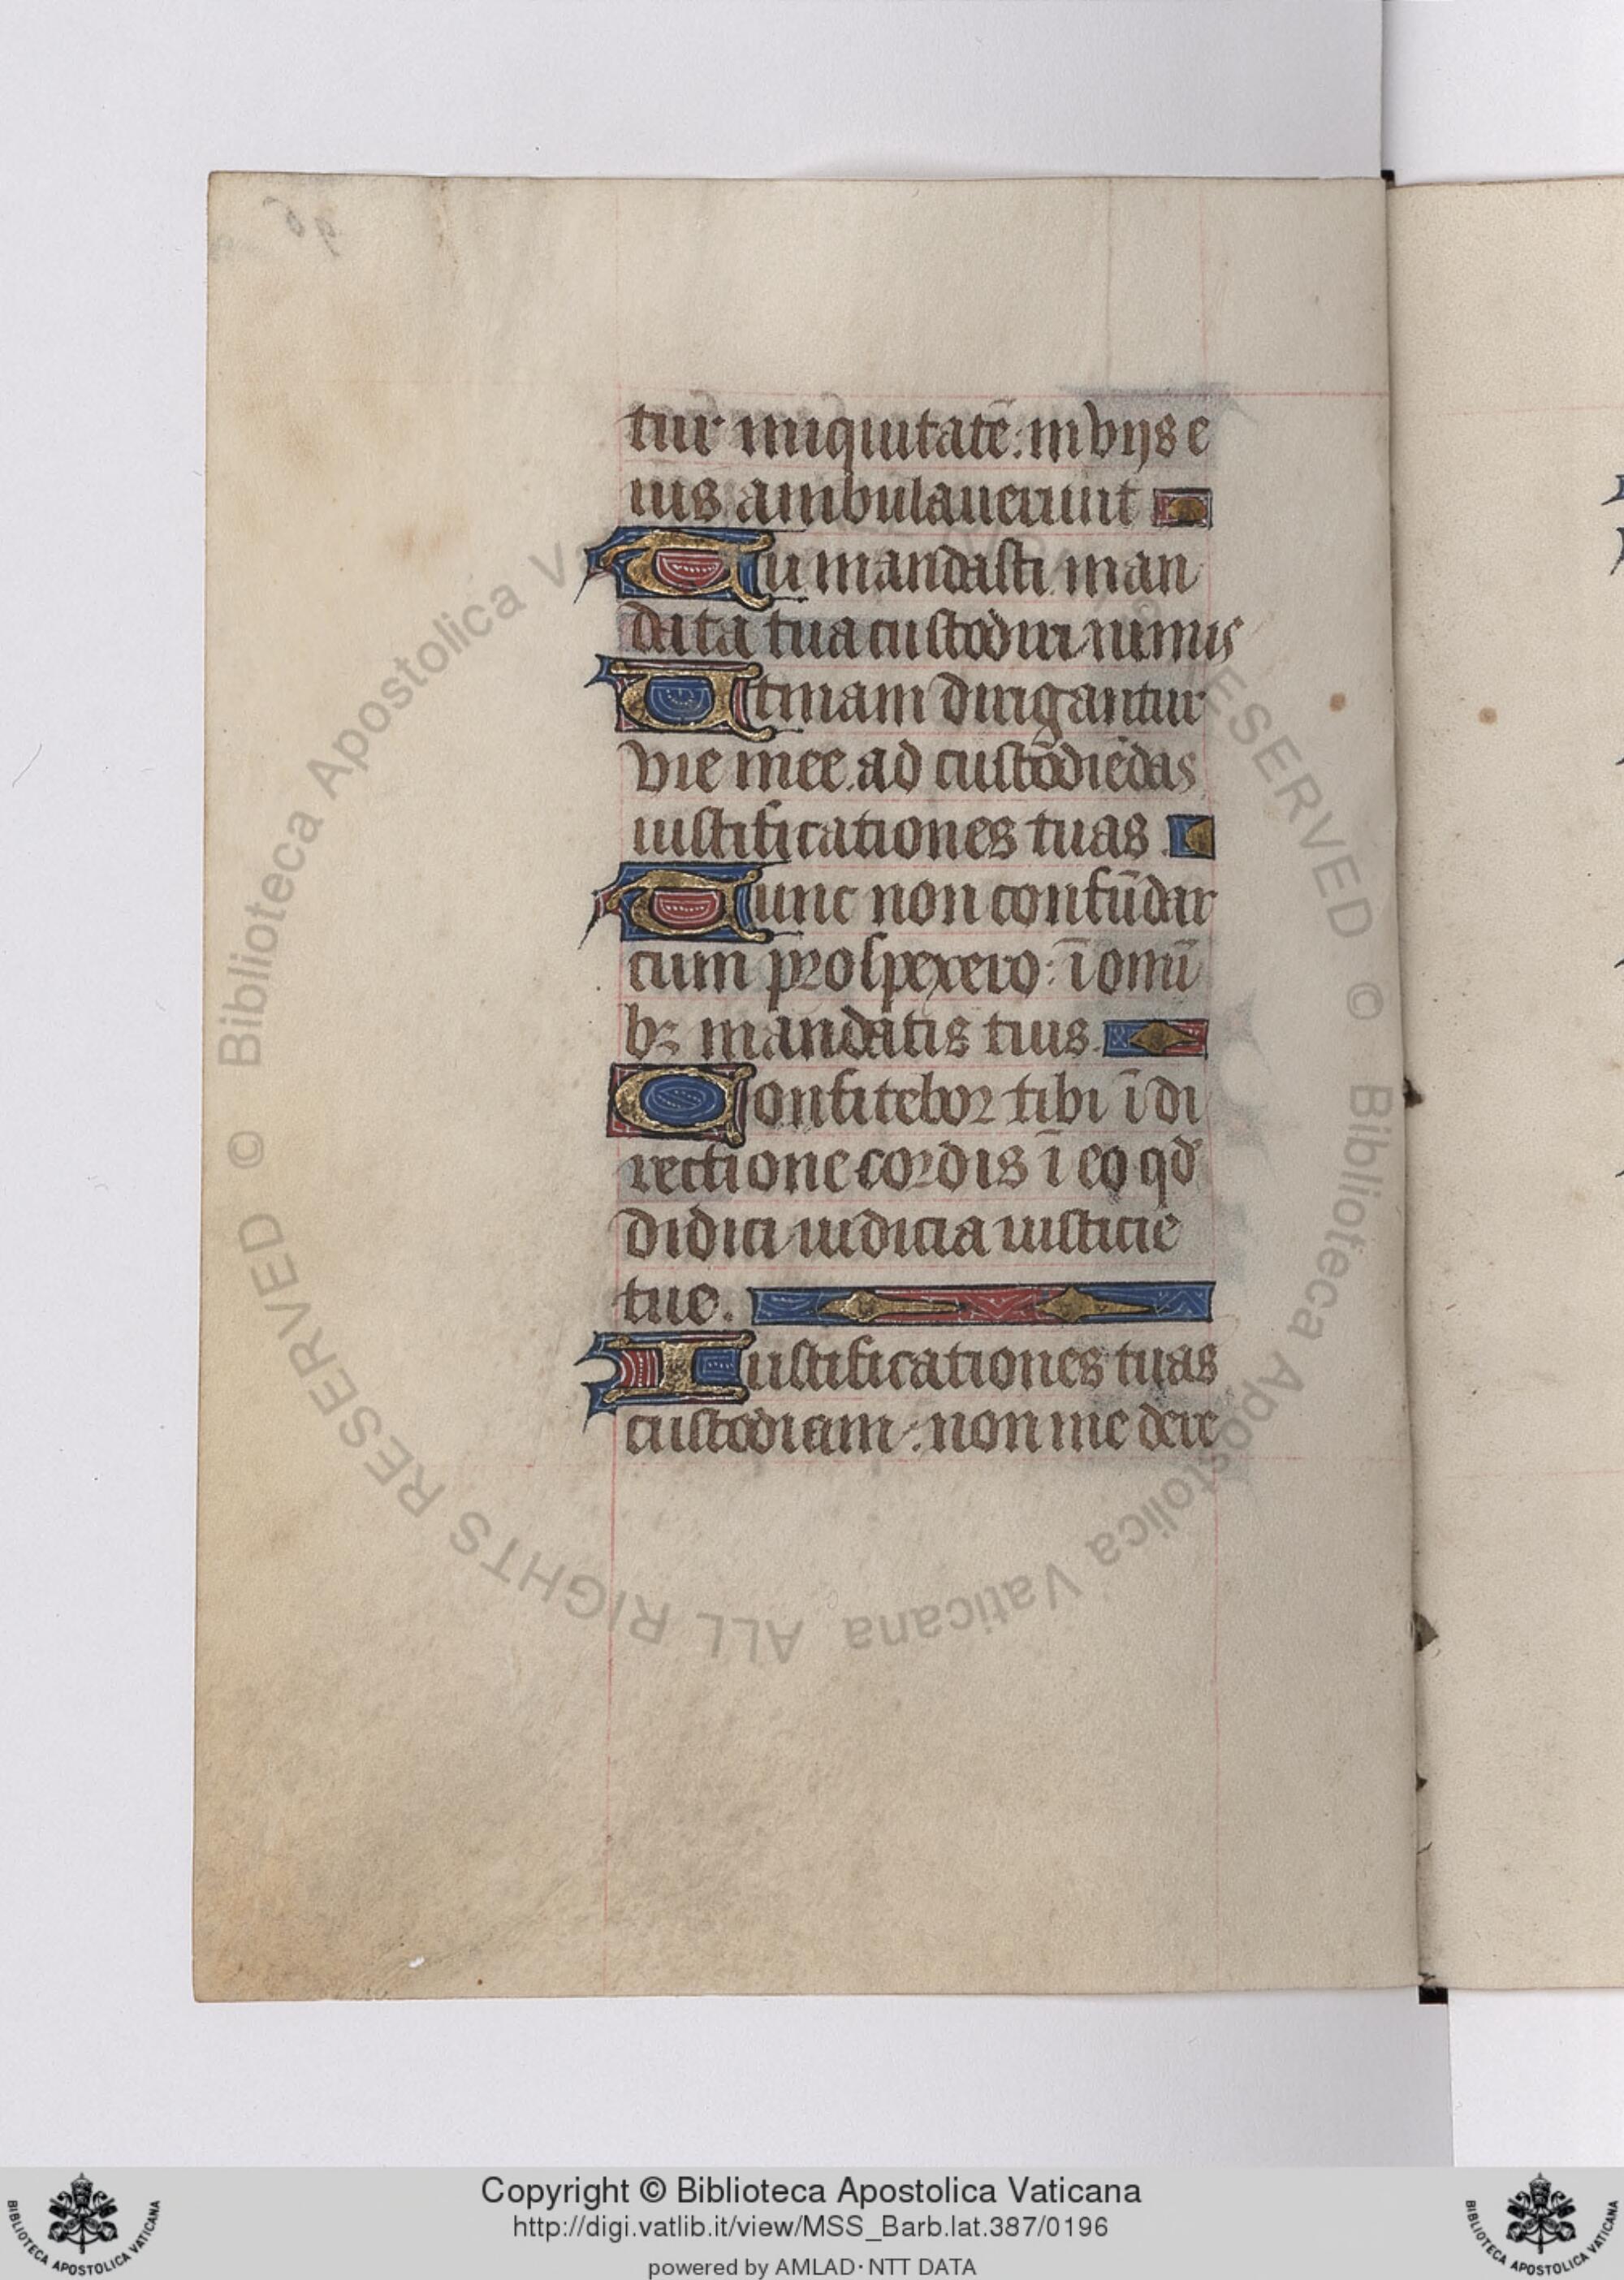 tur iniquitatē: in vijs e
ius ambulauerunt
Tu mandasti man
data tua custodiri nimis
Vtinam dirigantur
vie mee ad custōdiēdas
iustificationes tuas.
Tunc non confūdar
cum prospexero: ī omni
bꝫ mandatis tuis.
Confitebor tibi ī di
rectione cordis ī eo qđ
didici iudicia iusticie
tue.
Iustificationes tuas
custodiam: non me dere
© Biblioteca Apostolica Vaticana ALL RIGHTS RESERVED
Copyright © Biblioteca Apostolica Vaticana
http://digi.vatlib.it/view/MSS_Barb.lat.387/0196
powered by AMLAD·NTT DATA
BIBLIOTECA APOSTOLICA VATICANA
BIBLIOTECA APOSTOLICA VATICANA